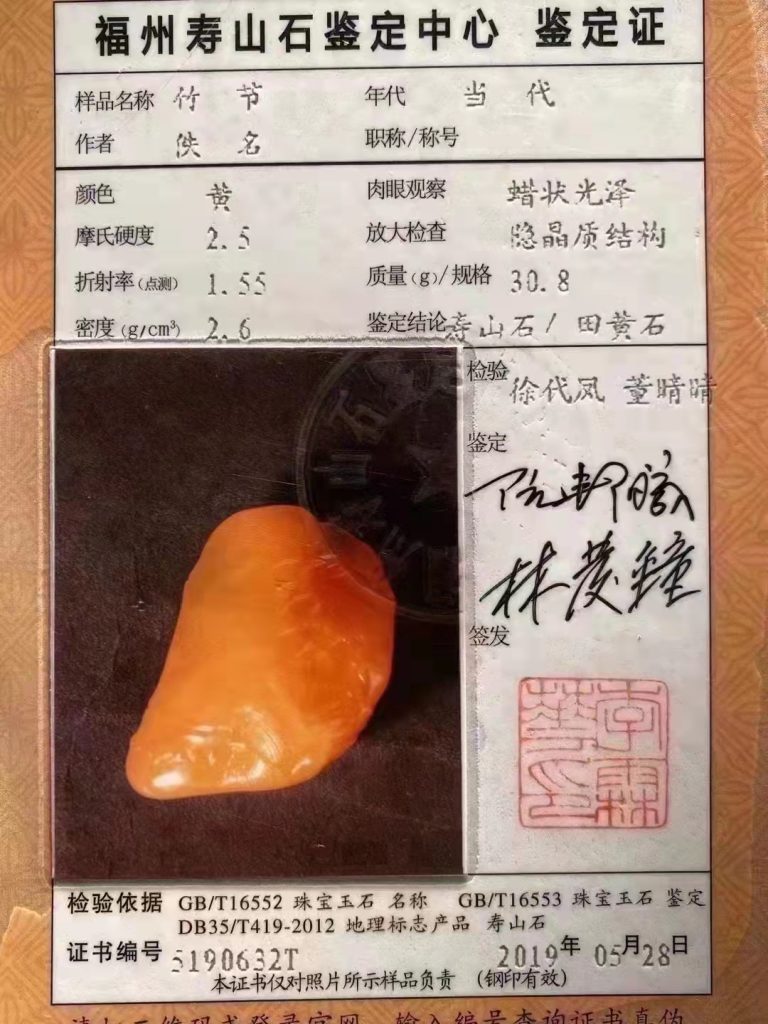 福州寿山石鉴定中心 鉴定证
样品名称 竹 节 年代 当 代
作者 佚 名 职称/称号
颜色 黄 肉眼观察 蜡状光泽
摩氏硬度 2.5 放大检查 隐晶质结构
折射率(点测) 1.55 质量(g)/规格 30.8
密度(g/cm³) 2.6 鉴定结论 寿山石/ 田黄石
检验 徐代凤 董晴晴
鉴定
签发
检验依据 GB/T16552 珠宝玉石 名称 GB/T16553 珠宝玉石 鉴定
DB35/T419-2012 地理标志产品 寿山石
证书编号 5190632T 2019年 05月28日
本证书仅对照片所示样品负责 (钢印有效)
输入编号查询证书真伪